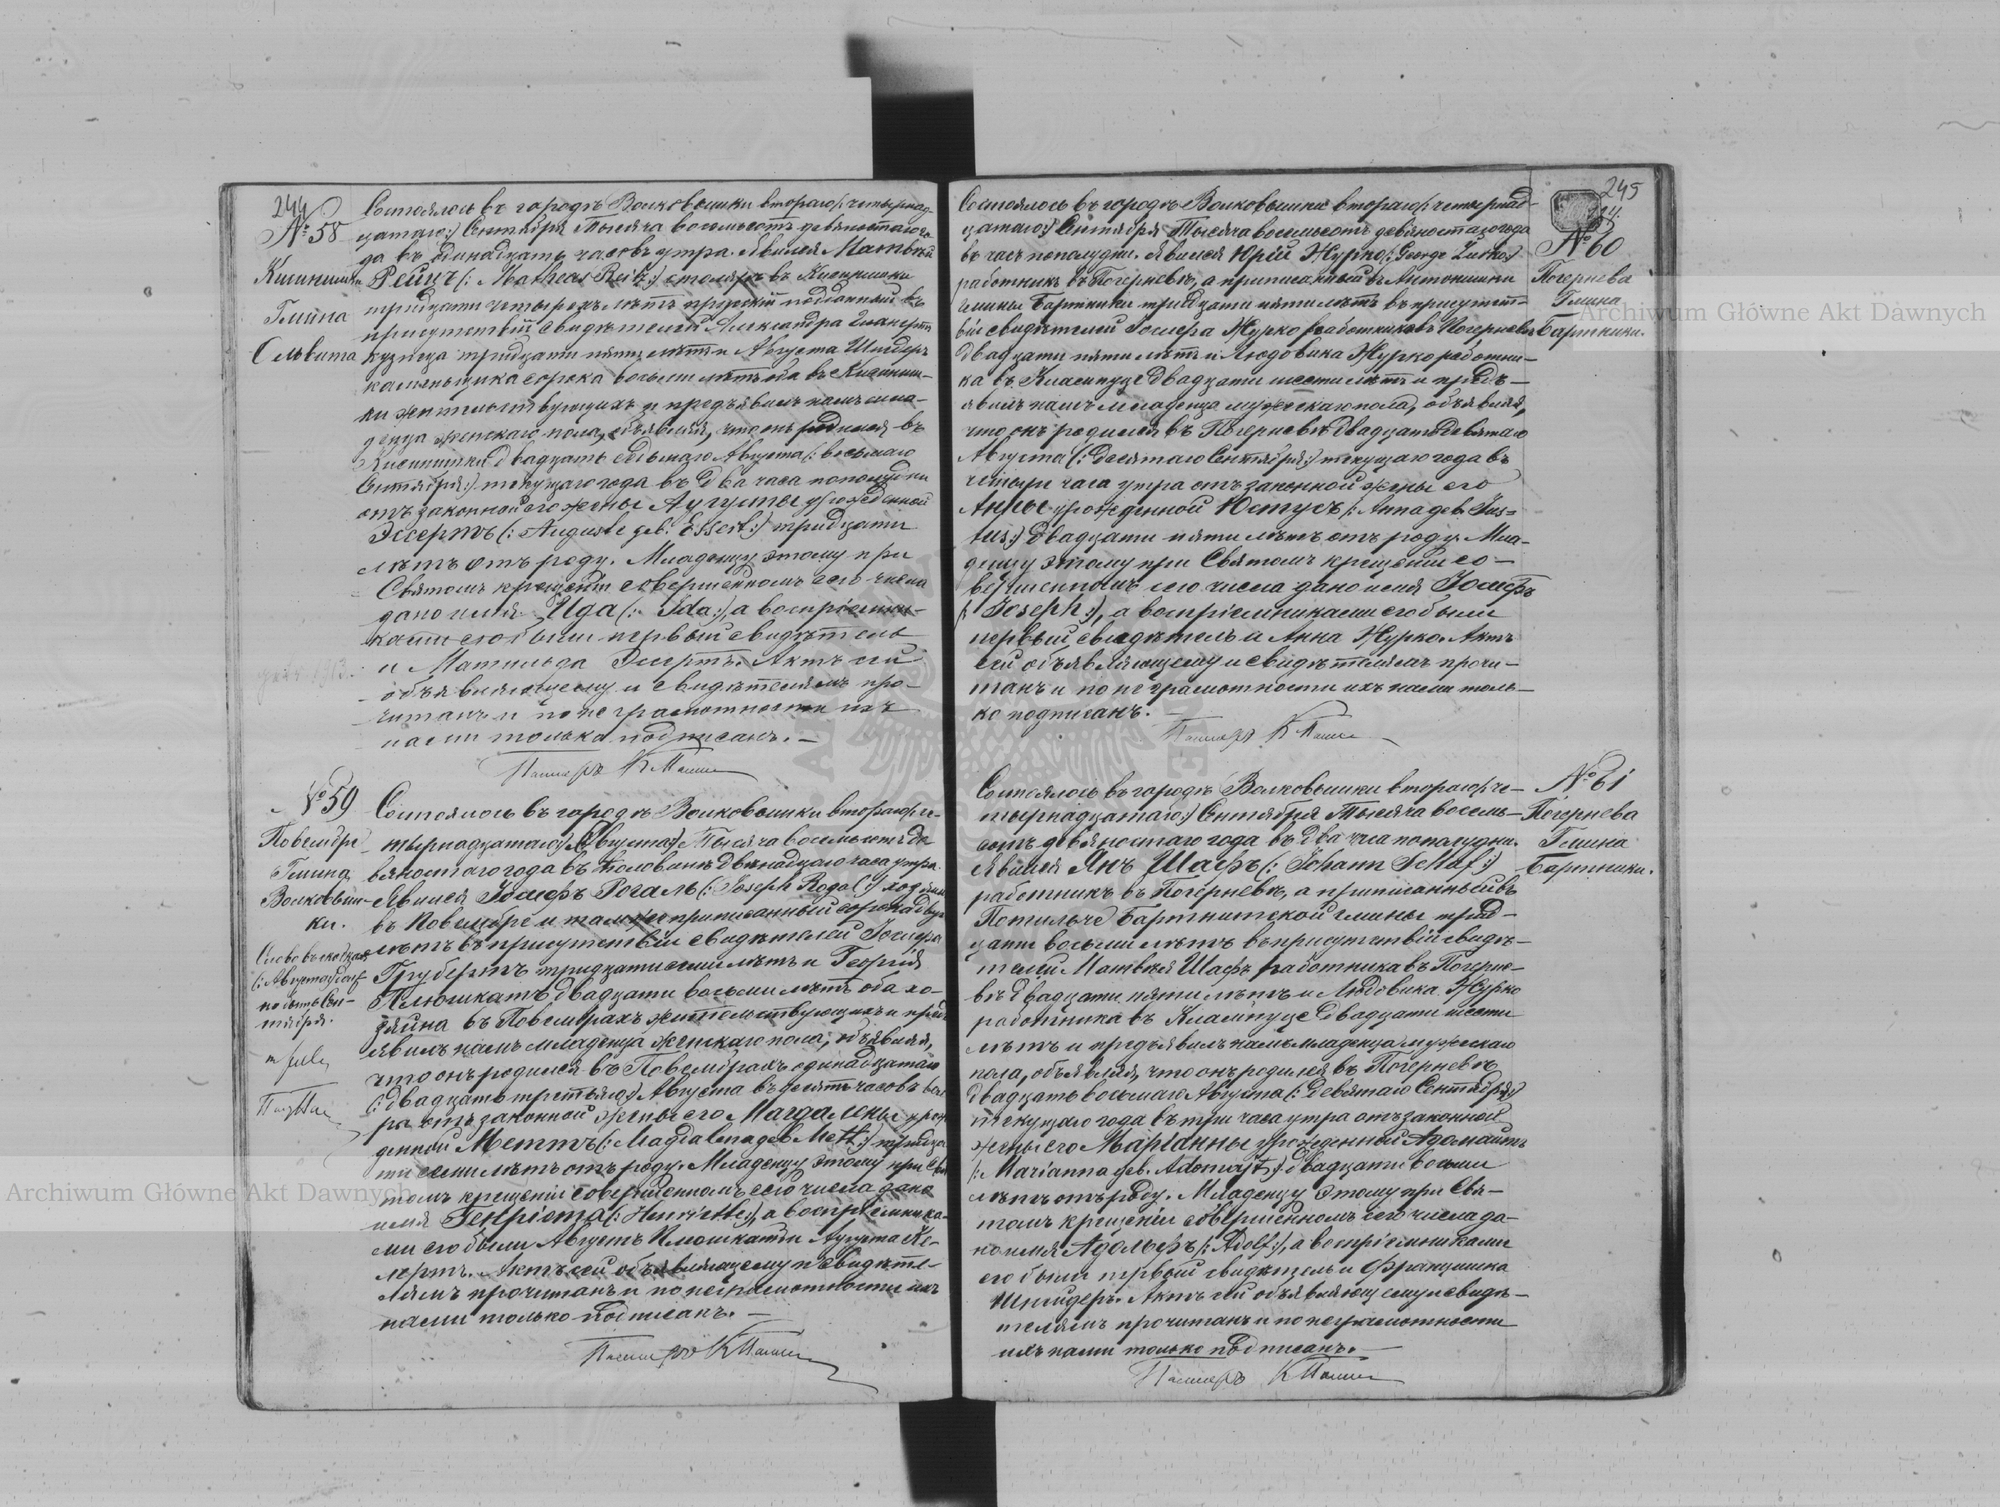 244
№ 58
Кисинишки
Гмина
Ольвита
Состоялось въ городѣ Волковышки втораго (:четырнад-
цатаго:) Сентября Тысяча восемьсотъ девяностаго го-
да въ одинадцать часовъ утра. Явился Матвѣй
Рейцъ (: Mathews Reitz:) столяръ въ Кисинишки
тридцати четырехъ лѣтъ прусскій подданный въ
присутствіи свидѣтелей Александра
кузнеца тридцати пяти лѣтъ и Августа Шнидеръ
каменьщика сорока восьми лѣтъ оба въ Кисиниш-
ки жительствующихъ и предъявилъ намъ мла-
денца женскаго пола, объявляя, что онъ родился въ
Кисинишки двадцать седьмаго Августа (: восьмаго
Сентября:) текущаго года въ два часа пополудни
отъ законной его жены Аугусты урожденной
Эсертъ (: Auguste geb. Essert:) тридцати
лѣтъ отъ роду. Младенцу этому при
Святомъ крещеніи совершенномъ сего числа
дано имя Ида (: Ida:), а воспріемни-
ками его были первый свидѣтель
и Матильда Эсертъ. Актъ сей
объявляющему и свидѣтелямъ про-
читанъ и по неграмотности ихъ
нами только подписанъ. —
Пасторъ
№ 59
Повембри
Гмина
Волковыш-
ки.
Состоялось въ городѣ Волковышки втораго (: че-
тырнадцатаго:) Августа Тысяча восемьсотъ де-
вяностаго года въ половинѣ двѣнадцаго часа утра.
Явился Іосифъ Рогаль (: Joseph Rogal:) хозяинъ
въ Повембре и тамже приписанный сорока двухъ
лѣтъ въ присутствіи свидѣтелей Іосифа
Грубертъ тридцати семи лѣтъ и Георгія
Плюшкатъ двадцати восьми лѣтъ оба хо-
зяина въ Повембрахъ жительствующихъ и предъ-
явилъ намъ младенца женскаго пола, объявляя,
что онъ родился въ Повембрахъ одинадцатаго
(: двадцать третьяго:) Августа въ десять часовъ вече-
ра отъ законной жены его Магдалены урож-
денной Меттъ (: Magdalena geb. Mett:) тридца-
ти семи лѣтъ отъ роду. Младенцу этому при Свя-
томъ крещеніи совершенномъ сего числа дано
имя Генріета (: Henriette:), а воспріемника-
ми его были Августъ Плюшкатъ и Аугуста Ке-
лертъ. Актъ сей объявляющему и свидѣте-
лямъ прочитанъ и по неграмотности ихъ
нами только подписанъ. —
Пасторъ
245
№ 60
Погернева
Гмина
Бартники.
Состоялось въ городѣ Волковышки втораго (: четырнад-
цатаго:) Сентября Тысяча восемьсотъ девяностаго года
въ часъ пополудни. Явился Юрій Журко (: George Zurko:)
работникъ въ Погерневѣ, а приписанный въ Антонишки
гмины Бартники тридцати пяти лѣтъ въ присутст-
віи свидѣтелей Іосифа Журко работника въ Погерневѣ
двадцати пяти лѣтъ и Людовика Журко работни-
ка въ Клампуце двадцати шести лѣтъ и предъ-
явилъ намъ младенца мужескаго пола, объявляя,
что онъ родился въ Погерневѣ двадцать девятаго
Августа (: десятаго Сентября:) текущаго года въ
четыре часа утра отъ законной жены его
Анны урожденной Юстусъ (: Anna geb. Jus-
tus:) двадцати пяти лѣтъ отъ роду. Мла-
денцу этому при Святомъ крещеніи со-
вершенномъ сего числа дано имя Іосифъ
(: Joseph:), а воспріемниками его были
первый свидѣтель и Анна Журко. Актъ
сей объявляющему и свидѣтелямъ прочи-
танъ и по неграмотности ихъ нами толь-
ко подписанъ. —
Пасторъ
№ 61
Погернева
Гмина
Бартники.
Состоялось въ городѣ Волковышки втораго (: че-
тырнадцатаго:) Сентября Тысяча восемь-
сотъ девяностаго года въ два часа пополудни.
Явился Янъ Шафъ (: Johann Schaf:)
работникъ въ Погерневѣ, а приписанный въ
Потильче Бартнитской гмины трид-
цати восьми лѣтъ въ присутствіи свидѣ-
телей Матвѣя Шафъ работника въ Погерне-
вѣ двадцати пяти лѣтъ и Людовика Журко
работника въ Клампуце двадцати шести
лѣтъ и предъявилъ намъ младенца мужескаго
пола, объявляя, что онъ родился въ Погерневѣ
двадцать восьмаго Августа (: девятаго Сентября:)
текущаго года въ три часа утра отъ законной
жены его Маріанны урожденной Адомайтъ
(: Marianna geb. Adomayt:) двадцати восьми
лѣтъ отъ роду. Младенцу этому при Свя-
томъ крещеніи совершенномъ сего числа да-
но имя Адольфъ (: Adolf:), а воспріемниками
его были первый свидѣтель и Францишка
Шнидеръ. Актъ сей объявляющему и свидѣ-
телямъ прочитанъ и по неграмотности
ихъ нами только подписанъ. —
Пасторъ
Archiwum Główne Akt Dawnych
Archiwum Główne Akt Dawnych